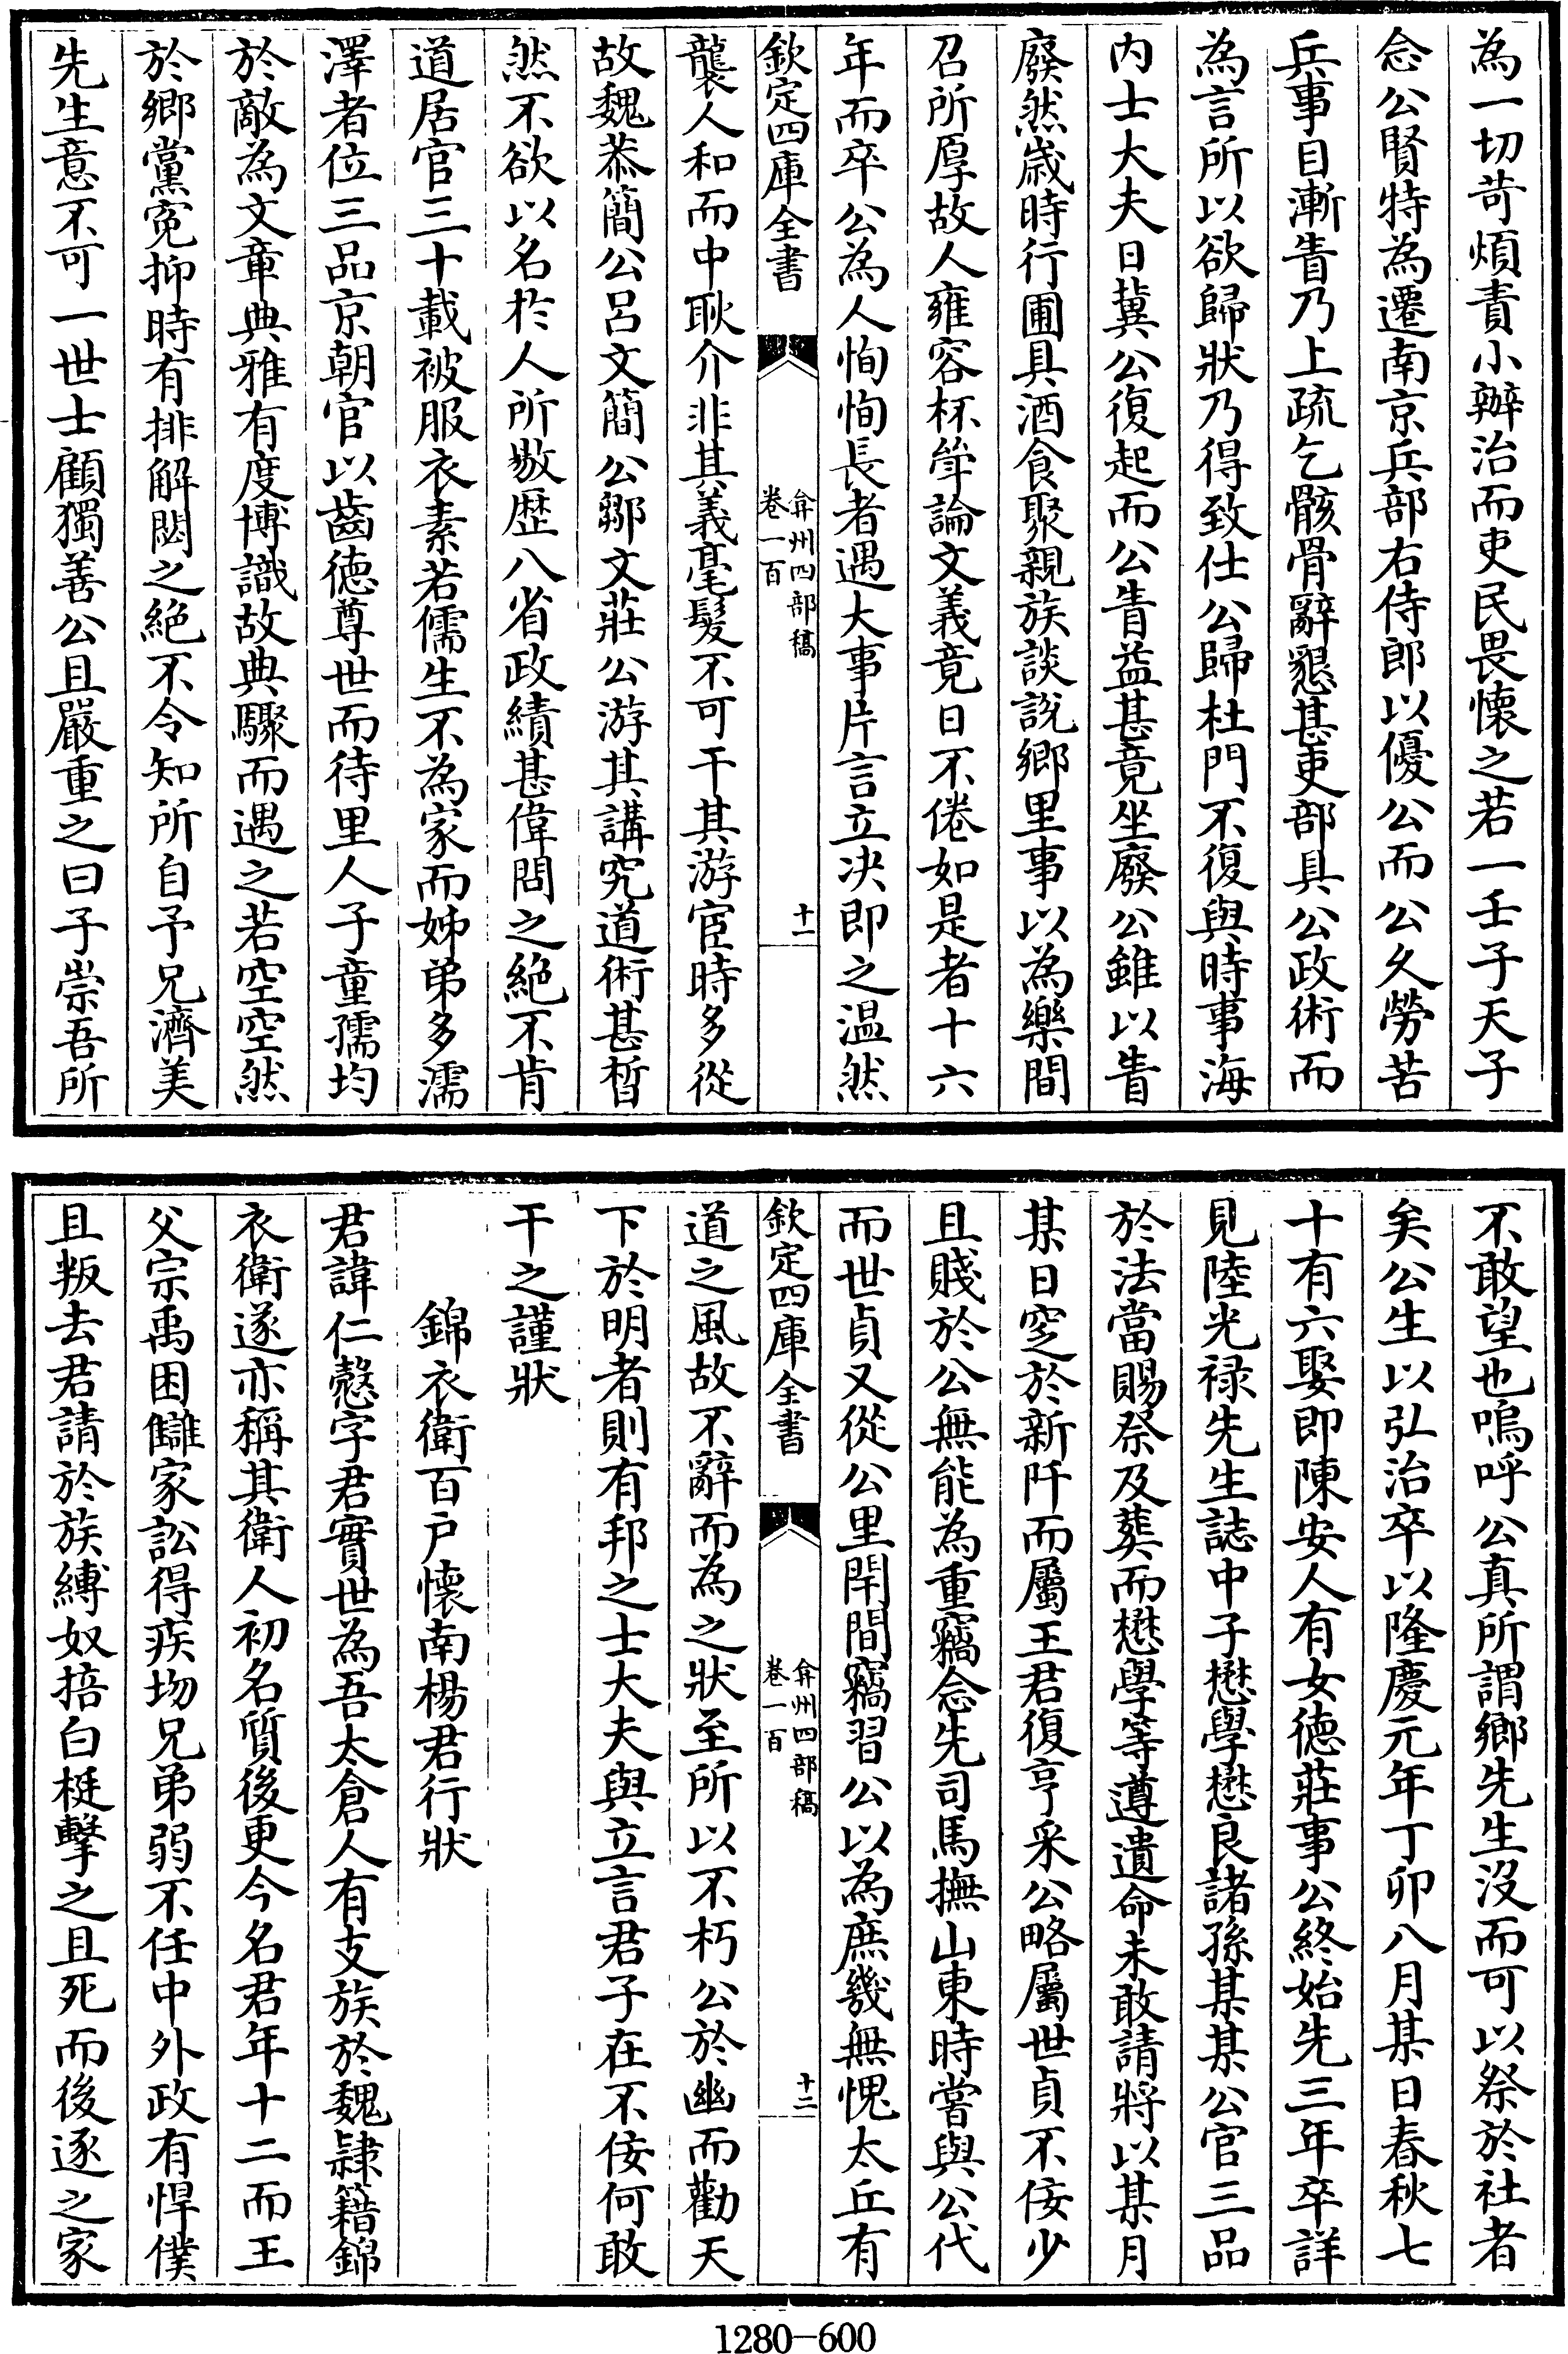 為一切苛煩責小辦治而吏民畏懷之若一壬子天子
念公賢特為遷南京兵部右侍郎以優公而公久勞苦
兵事目漸眚乃上疏乞骸骨辭懇甚吏部具公政術而
為言所以欲歸狀乃得致仕公歸杜門不復與時事海
内士大夫日冀公復起而公眚益甚竟坐廢公雖以眚
廢然歳時行圃具酒食聚親族談説鄉里事以為樂間
召所厚故人雍容杯斚論文義竟日不倦如是者十六
年而卒公為人恂恂長者遇大事片言立决即之温然
欽定四庫全書
弇州四部稿
卷一百
十一
襲人和而中耿介非其義毫髮不可干其游宦時多從
故魏恭簡公吕文簡公鄒文莊公游其講究道術甚晳
然不欲以名於人所敭歴八省政績甚偉問之絶不肯
道居官三十載被服衣素若儒生不為家而姊弟多濡
澤者位三品京朝官以齒德尊世而待里人子童孺均
於敵為文章典雅有度博識故典驟而遇之若空空然
於鄉黨寃抑時有排解閟之絶不令知所自予兄濟美
先生意不可一世士顧獨善公且嚴重之曰子崇吾所
不敢望也嗚呼公真所謂鄉先生沒而可以祭於社者
矣公生以弘治卒以隆慶元年丁卯八月某日春秋七
十有六娶即陳安人有女德莊事公終始先三年卒詳
見陸光禄先生誌中子懋學懋良諸孫某某公官三品
於法當賜祭及葬而懋學等遵遺命未敢請將以某月
某日窆於新阡而屬王君復亨采公略屬世貞不佞少
且賤於公無能為重竊念先司馬撫山東時嘗與公代
而世貞又從公里閈間竊習公以為庶幾無愧太丘有
欽定四庫全書
弇州四部稿
卷一百
十二
道之風故不辭而為之狀至所以不朽公於幽而勸天
下於明者則有邦之士大夫與立言君子在不佞何敢
干之謹狀
錦衣衛百户懷南楊君行狀
君諱仁愨字君實世為吾太倉人有支族於魏隷籍錦
衣衛遂亦稱其衛人初名質後更今名君年十二而王
父宗禹困讎家訟得疾物兄弟弱不任中外政有悍僕
且叛去君請於族縛奴掊白梃擊之且死而後逐之家
1280-600